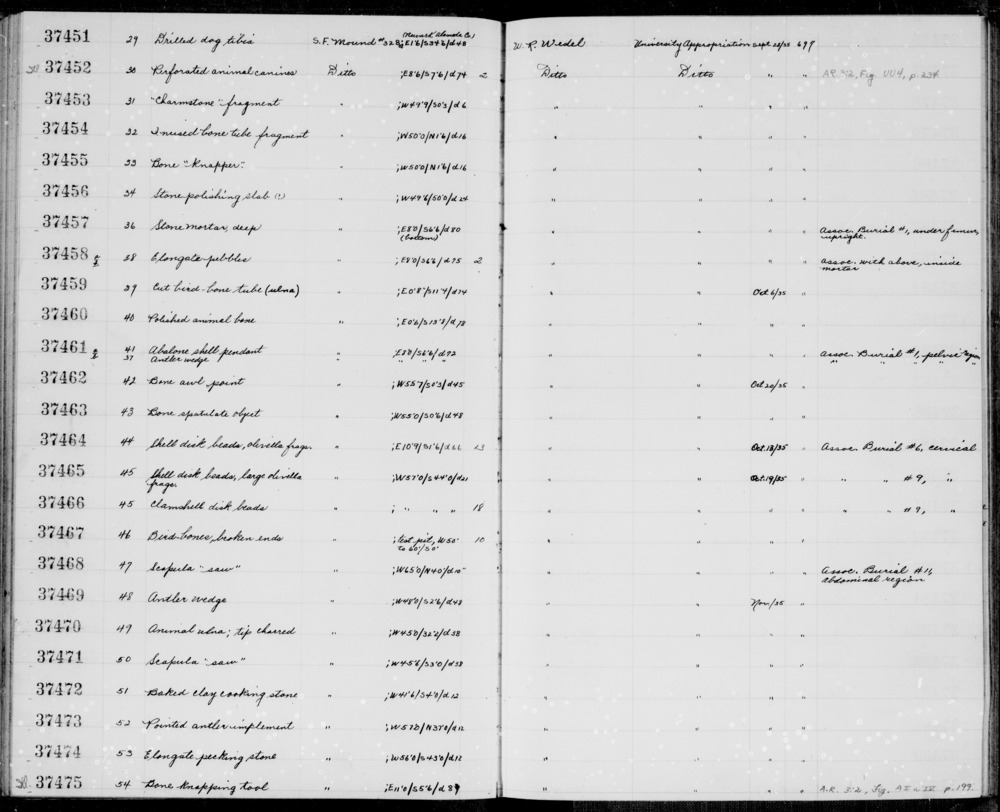 37451 29 Drilled dog tibia S.F. Mound #328; E1'6/S34'6/d48 (Newark, Alameda Co.) W. R. Wedel University Appropriation Sept 28/35 699
37452 30 Perforated animal canines Ditto ;E8'6/S7'6/d74 2 Ditto Ditto " " A.R. 3:2, Fig. UU4, p. 234
37453 31 "Charmstone" fragment " ;W49'9/S0'3/d6 " " " "
37454 32 Incised bone tube fragment " ;W50'0/N1'6/d16 " " " "
37455 33 Bone "knapper" " ;W50'0/N1'6/d16 " " " "
37456 34 Stone polishing slab (?) " ;W49'6/S0'0/d24 " " " "
37457 36 Stone mortar, deep " ;E8'0/S6'6/d80 (bottom) " " " " Assoc. Burial #1, under femur,
upright.
37458 38 Elongate pebbles " ;E8'0/S6'6/d75 2 " " " " assoc. with above, inside
mortar
37459 39 Cut bird-bone tube (ulna) " ;E0'8"/S11'4/d74 " " Oct 6/35 "
37460 40 Polished animal bone " ;E0'6/S13'8/d78 " " " "
37461 41 Abalone shell pendant " ;E8'0/S6'6/d72 " " " " assoc. Burial #1, pelvic region
37 Antler wedge " " " " " " " "
37462 42 Bone awl point " ;W55'7/S0'3/d45 " " Oct 20/35 "
37463 43 Bone spatulate object " ;W55'0/S0'6/d48 " " " "
37464 44 Shell disk beads, olivella frags. " ;E10'9/S1'6/d66 23 " " Oct. 13/35 " Assoc. Burial #6, cervical
37465 45 Shell disk beads, large olivella
frags. " ;W57'0/S44'0/d21 " " Oct. 19/35 " " " #9, "
37466 45 Clamshell disk beads " ; " " " 18 " " " " " " #9, "
37467 46 Bird-bones, broken ends " ;test pit, W50'
to 60'/S0' 10 " " " "
37468 47 Scapula "saw" " ;W65'0/N4'0/d10 " " " " Assoc. Burial #11,
abdominal region
37469 48 Antler wedge " ;W48'0/S2'6/d48 " " Nov/35 "
37470 49 Animal ulna; tip charred " ;W45'0/S2'2/d38 " " " "
37471 50 Scapula "saw" " ;W45'6/S3'0/d38 " " " "
37472 51 Baked clay cooking stone " ;W41'6/S4'0/d12 " " " "
37473 52 Pointed antler implement " ;W57'0/N37'0/d12 " " " "
37474 53 Elongate pecking stone " ;W56'0/S43'0/d12 " " " "
37475 54 Bone knapping tool " ;E11'0/S5'6/d89 " " " " A.R. 3:2, Fig. p. 199.